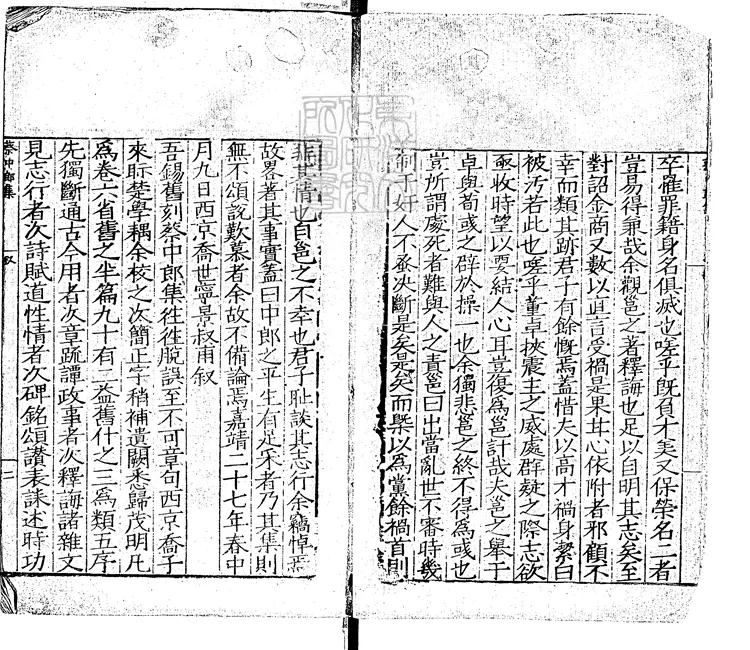 卒罹罪籍身名俱滅也嗟乎旣負才美又保榮名二者
豈易得兼哉余觀邕之著釋誨也足以自明其志矣至
對詔金商又數以直言受禍是果其心依附者邪顧不
幸而類其跡君子有餘慨焉蓋惜夫以高才禍身絜白
被汚若此也嗟乎董卓挾震主之威處群疑之際志欲
亟收時望以要結人心耳豈復爲邕計哉夫邕之舉于
卓與荀彧之辟於操一也余獨悲邕之終不得爲彧也
豈所謂處死者難與人之責邕曰出當亂世不審時幾
制于奸人不蚤決斷是矣是矣而槩以爲黨餘禍首則
非其情也自邕之不幸也君子恥談其志行余竊悼焉
故畧著其事實蓋曰中郎之平生有足采者乃其集則
無不頌說歎慕者余故不備論焉嘉靖二十七年春中
月九日西京喬世寧景叔甫叙
吾錫舊刻蔡中郎集徃徃脫誤至不可章句西京喬子
來眎楚學耦余校之次簡正字稍補遺闕悉歸茂明凡
爲卷六省舊之半篇九十有二益舊什之三爲類五序
先獨斷通古今用者次章疏譚政事者次釋誨諸雜文
見志行者次詩賦道性情者次碑銘頌讃表誄述時功
蔡中郎集
叙
二